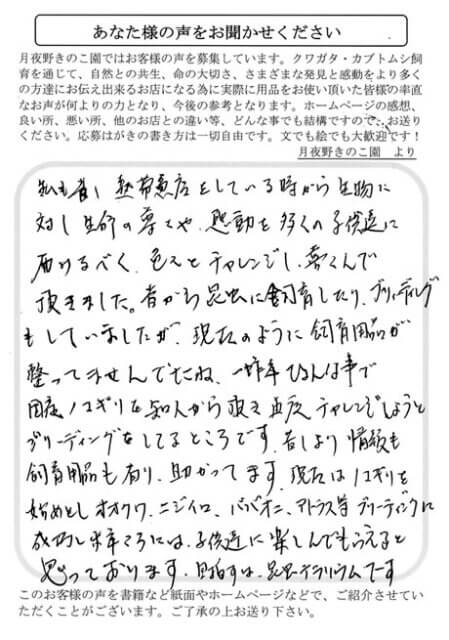 あなた様の声をお聞かせください
月夜野きのこ園ではお客様の声を募集しています。クワガタ・カブトムシ飼
育を通じて、自然との共生、命の大切さ、さまざまな発見と感動をより多く
の方達にお伝え出来るお店になる為に実際に用品をお使い頂いた皆様の率直
なお声が何よりの力となり、今後の参考となります。ホームページの感想、
良い所、悪い所、他のお店との違い等、どんな事でも結構ですので、お送り
ください。応募はがきの書き方は一切自由です。文でも絵でも大歓迎です！
月夜野きのこ園　より
私も昔、熱帯魚店をしている時から生物に
対し生命の尊さや、感動を多くの子供達に
届けるべく、色々とチャレンジし、喜んで
頂きました。昔から昆虫に飼育したり、ブリーディング
もしていましたが、現在のように飼育用品が
整ってませんでしたね、一昨年ひょんな事で
国産ノコギリを知人から頂き再度チャレンジしようと
ブリーディングをしてるところです。昔より情報も
飼育用品も有り、助かってます。現在はノコギリを
始めとしオオクワ、ニジイロ、ババオニ、アトラス等ブリーディングに
成功し来年ころには、子供達に楽しんでもらえると
思っております。目指すは、昆虫テラリウムです
このお客様の声を書籍など紙面やホームページなどで、ご紹介させてい
ただくことがございます。ご了承の上お送り下さい。